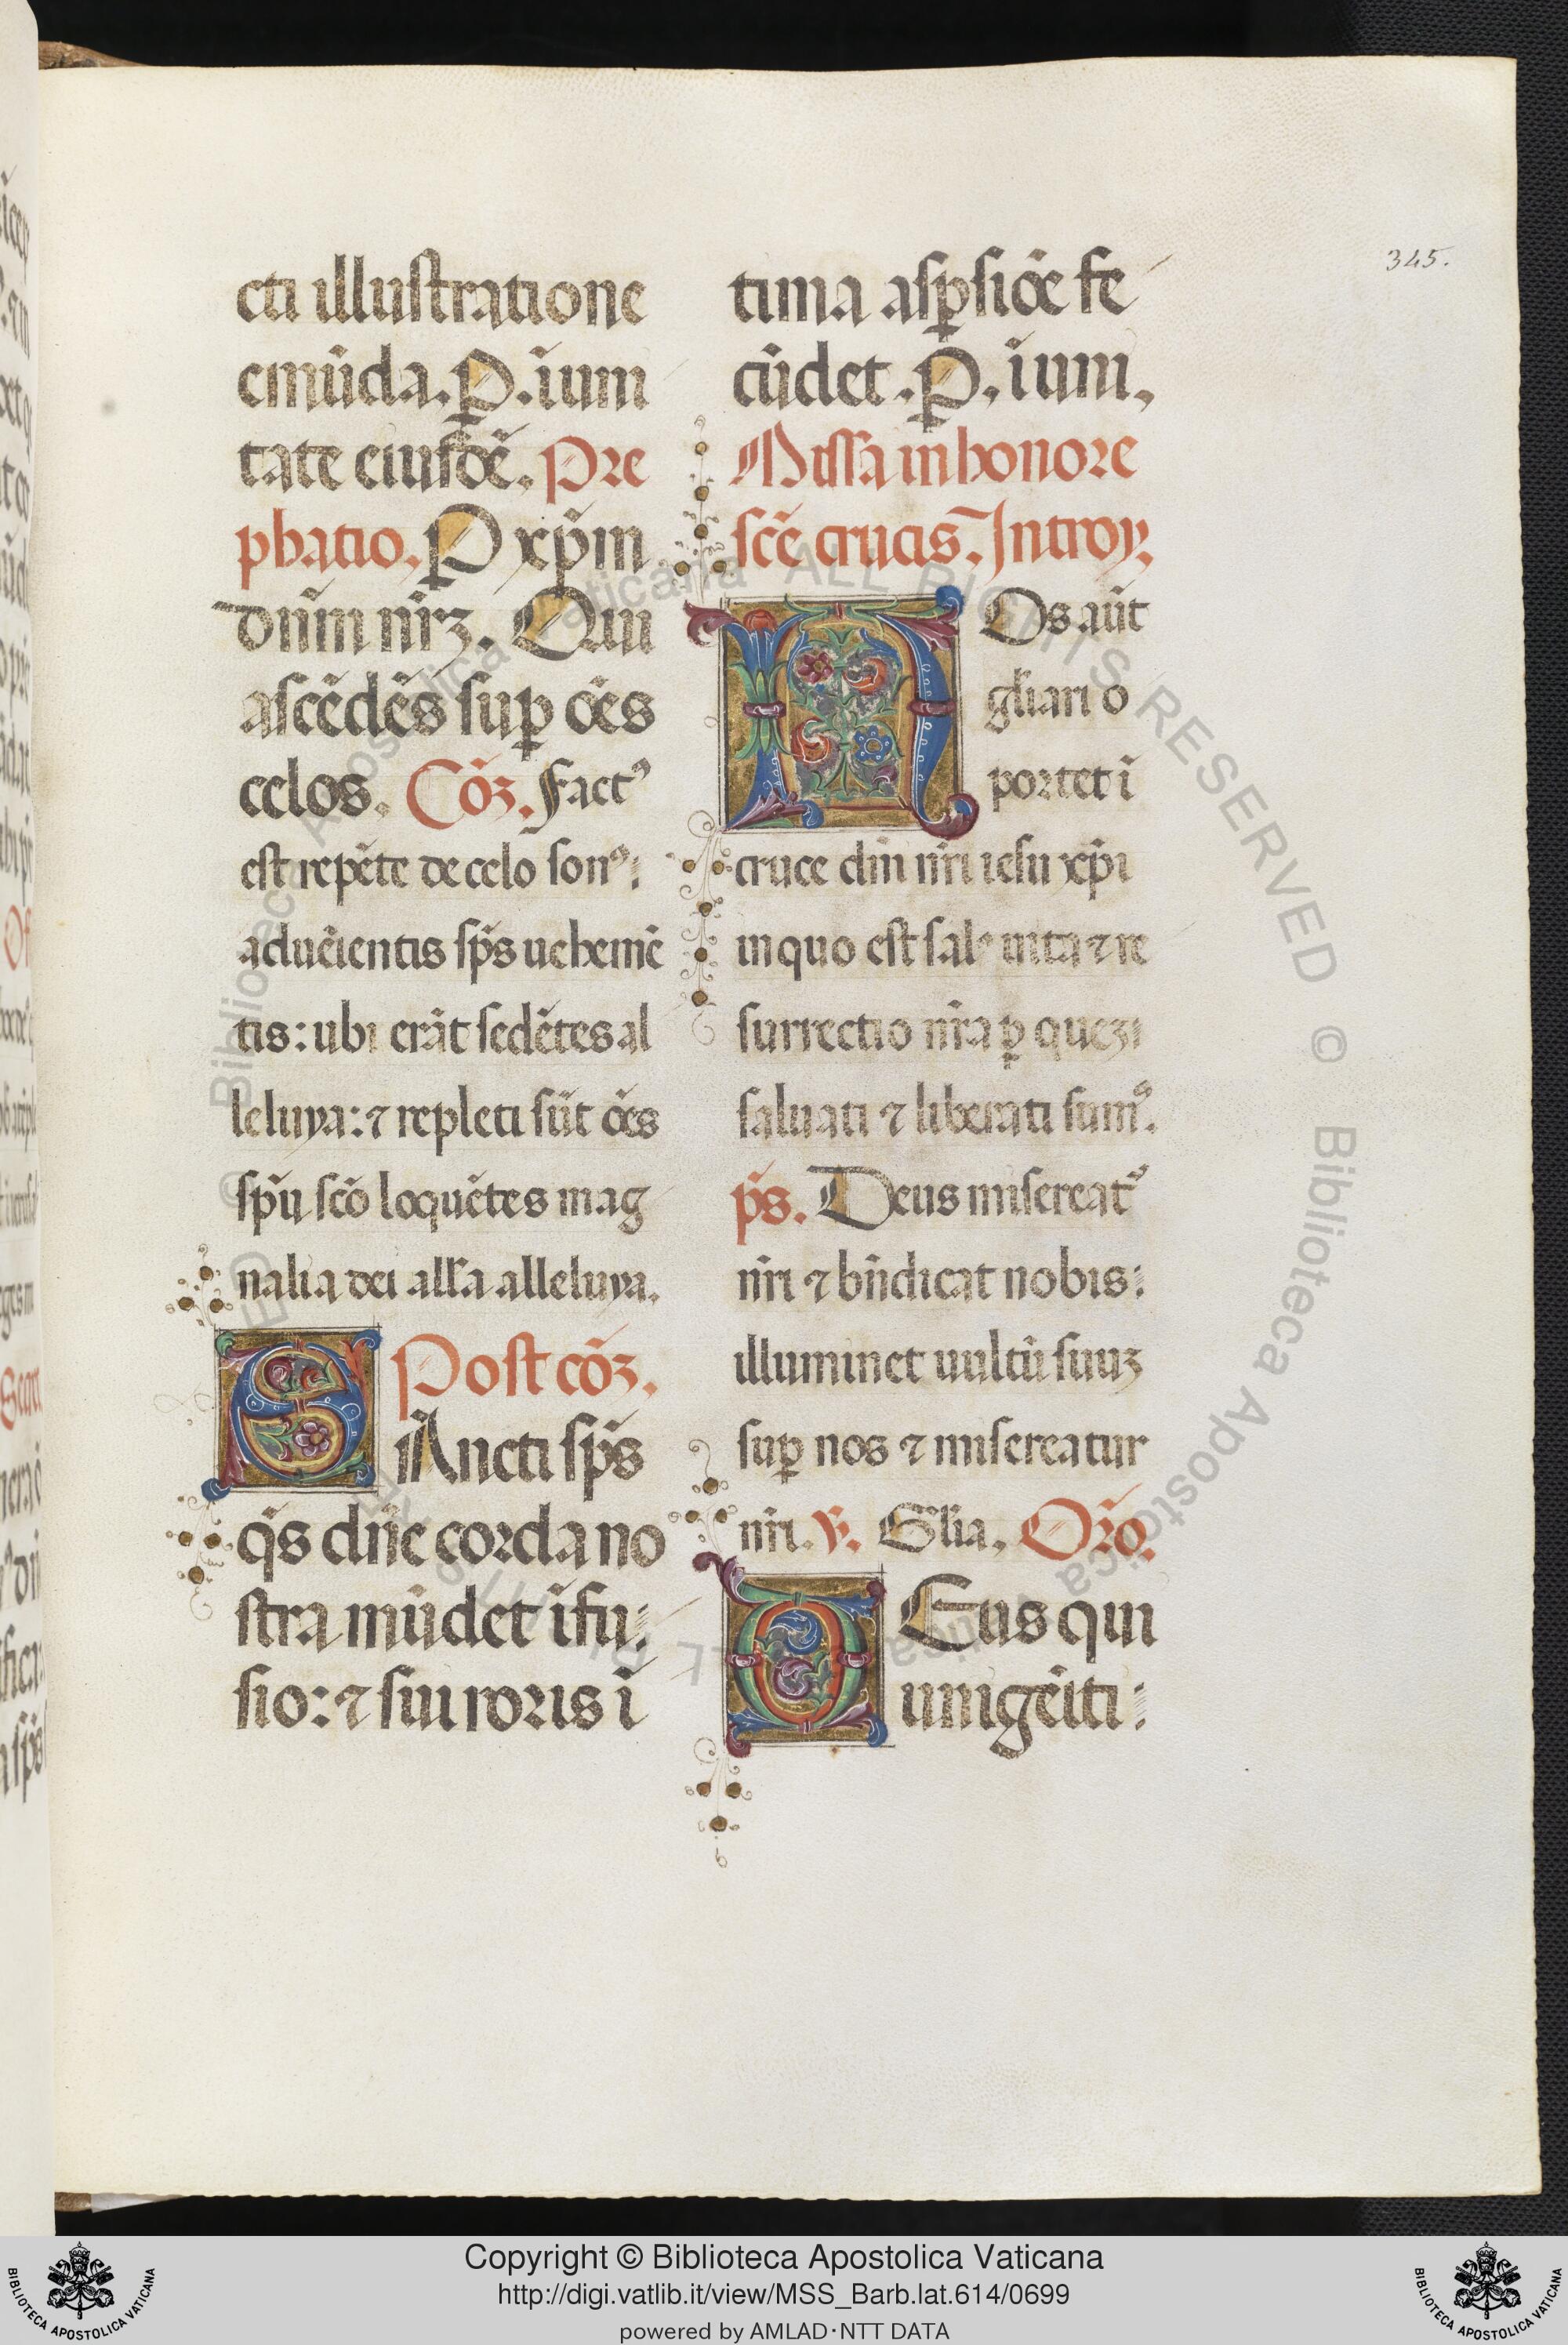 345.
cti illustratione
emūda. P. ī um
tate eiusdē. Pre
phatio. P xp̄m
dn̄m nr̄ꝫ. Qui
ascēdēs suꝑ oēs
celos. Cōꝫ. Factꝰ
est repēte de celo sonꝰ:
adueīentis sp̄s uehemē
tis: ubi erāt sedētes al
leluya: ⁊ repleti sūt oēs
sp̄u scō loquētes mag
nalia dei all'a alleluya.
Post cōꝫ.
SAncti sp̄s
q̄s dn̄e corda no
stra mūdet īfu:
sio: ⁊ sui roris ī
tima asꝑsiōe fe
cūdet. P. ī um.
Missa in honore
scē crucis. Introy.
NOs aūt
gl̄iari o
portet ī
cruce dn̄i nr̄i iesu xp̄i
in quo est salꝰ uita ⁊ re
surrectio nr̄a ꝑ queꝫ
saluati ⁊ liberati sumꝰ.
p̄s. Deus misereatᷣ
nr̄i ⁊ bn̄dicat nobis:
illuminet uultū suuꝫ
suꝑ nos ⁊ misereatur
nr̄i. ℣. Gl̄ia. Or̄o.
DEus qui
unigēiti:
Copyright © Biblioteca Apostolica Vaticana
http://digi.vatlib.it/view/MSS_Barb.lat.614/0699
powered by AMLAD·NTT DATA
BIBLIOTECA APOSTOLICA VATICANA
BIBLIOTECA APOSTOLICA VATICANA